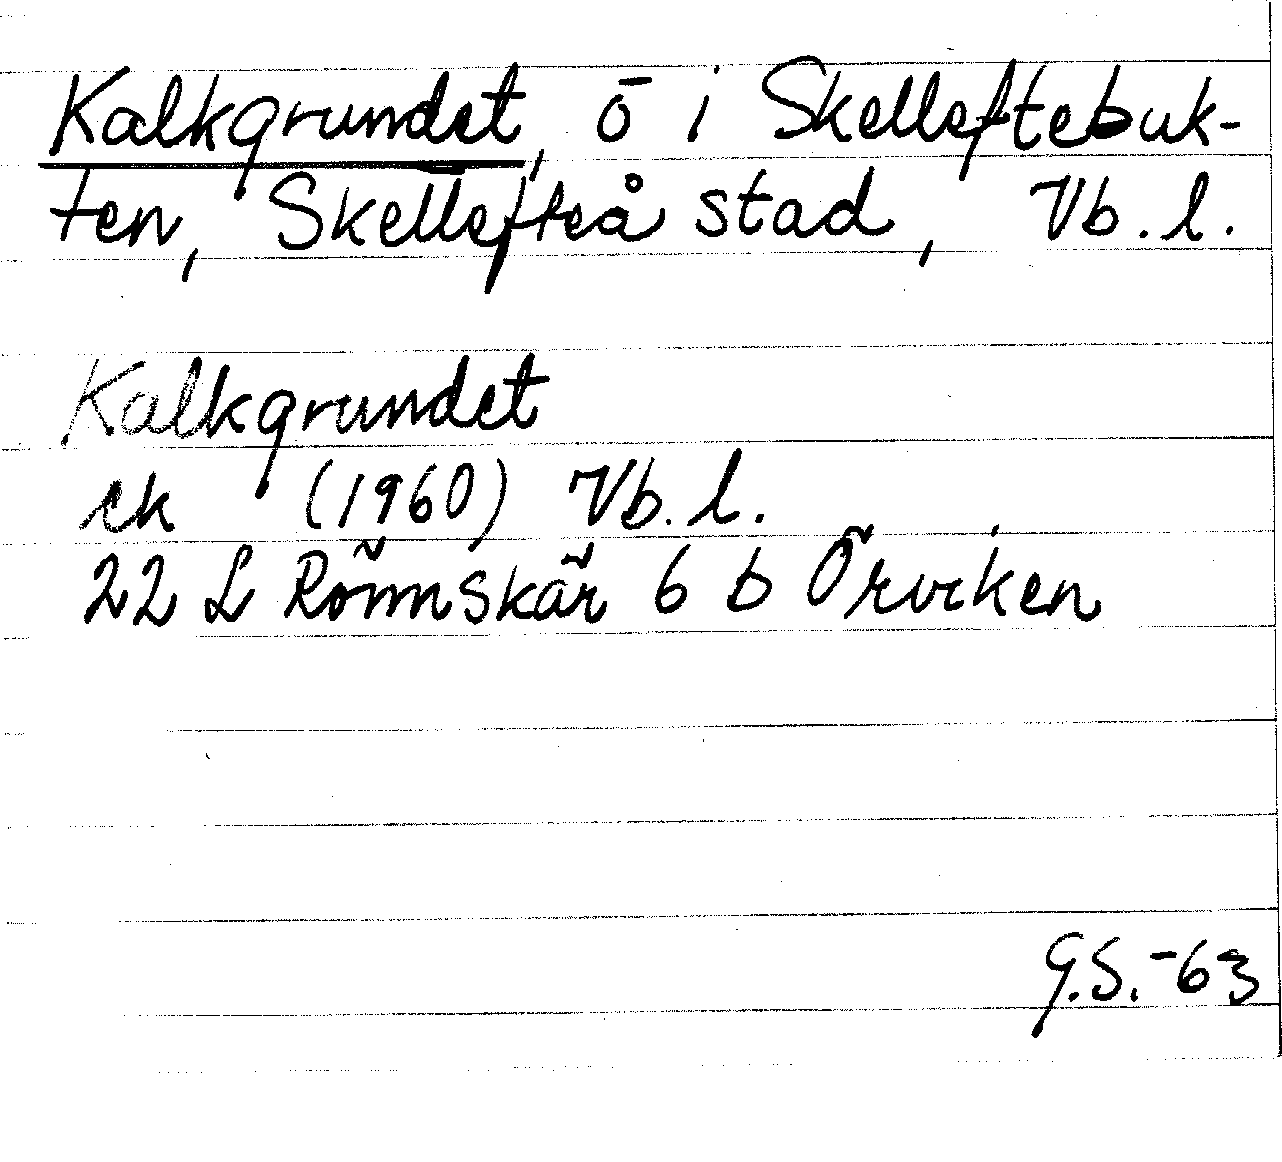 Kalkgrundet, ö i Skelleftebuk-
ten, Skellefteå stad, Vb. l.
Kalkgrundet
ek (1960) Vb. l.
22 L Rönnskär 6 b Örviken
G.S. -63